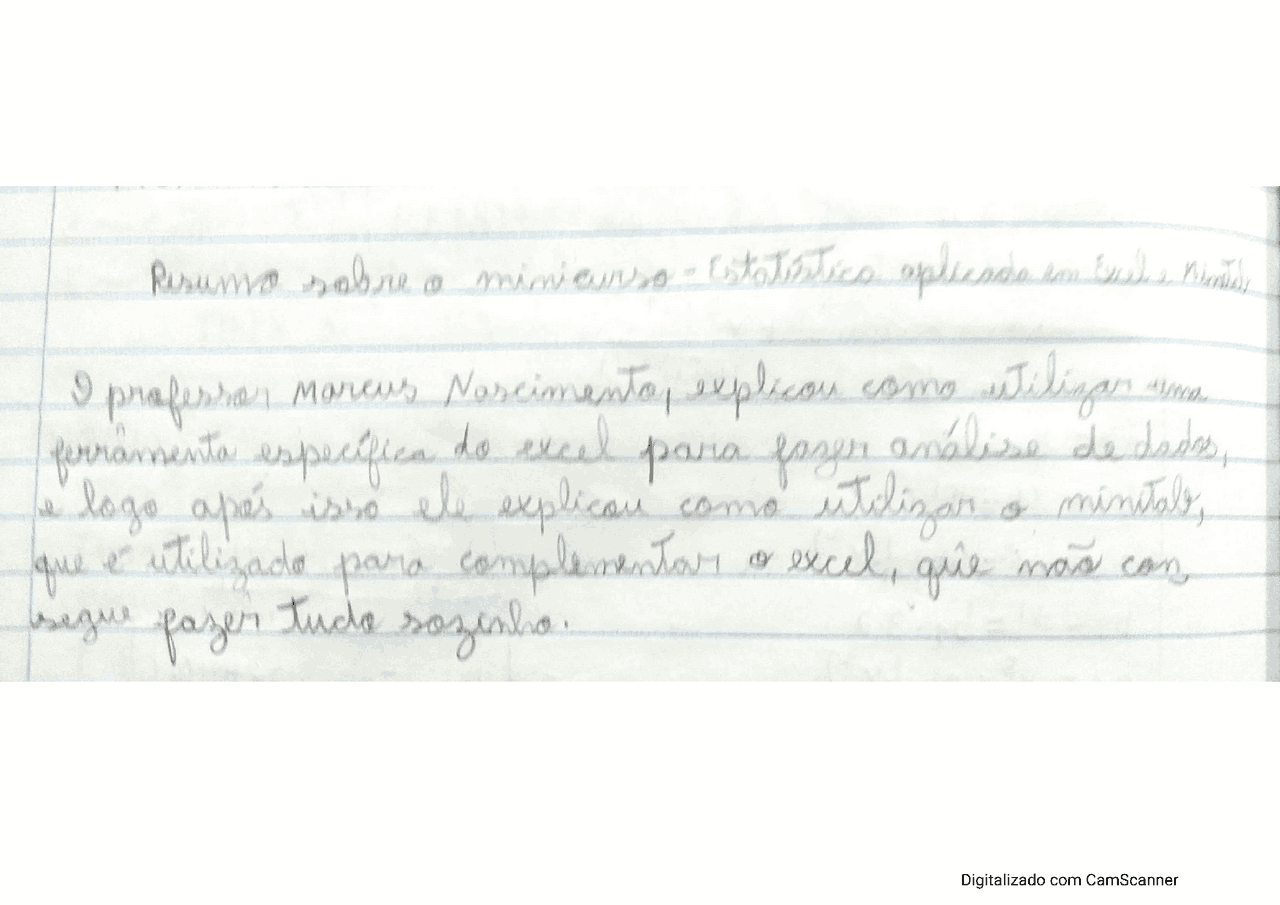 Resumo sobre o minicurso - Estatística aplicada em Excel e Minitab
O professor Marcus Nascimento, explicou como utilizar uma
ferrâmenta específica do excel para fazer análise de dados,
e logo após isso ele explicou como utilizar o minitab,
que é utilizado para complementar o excel, que não con
segue fazer tudo sozinho.
Digitalizado com CamScanner